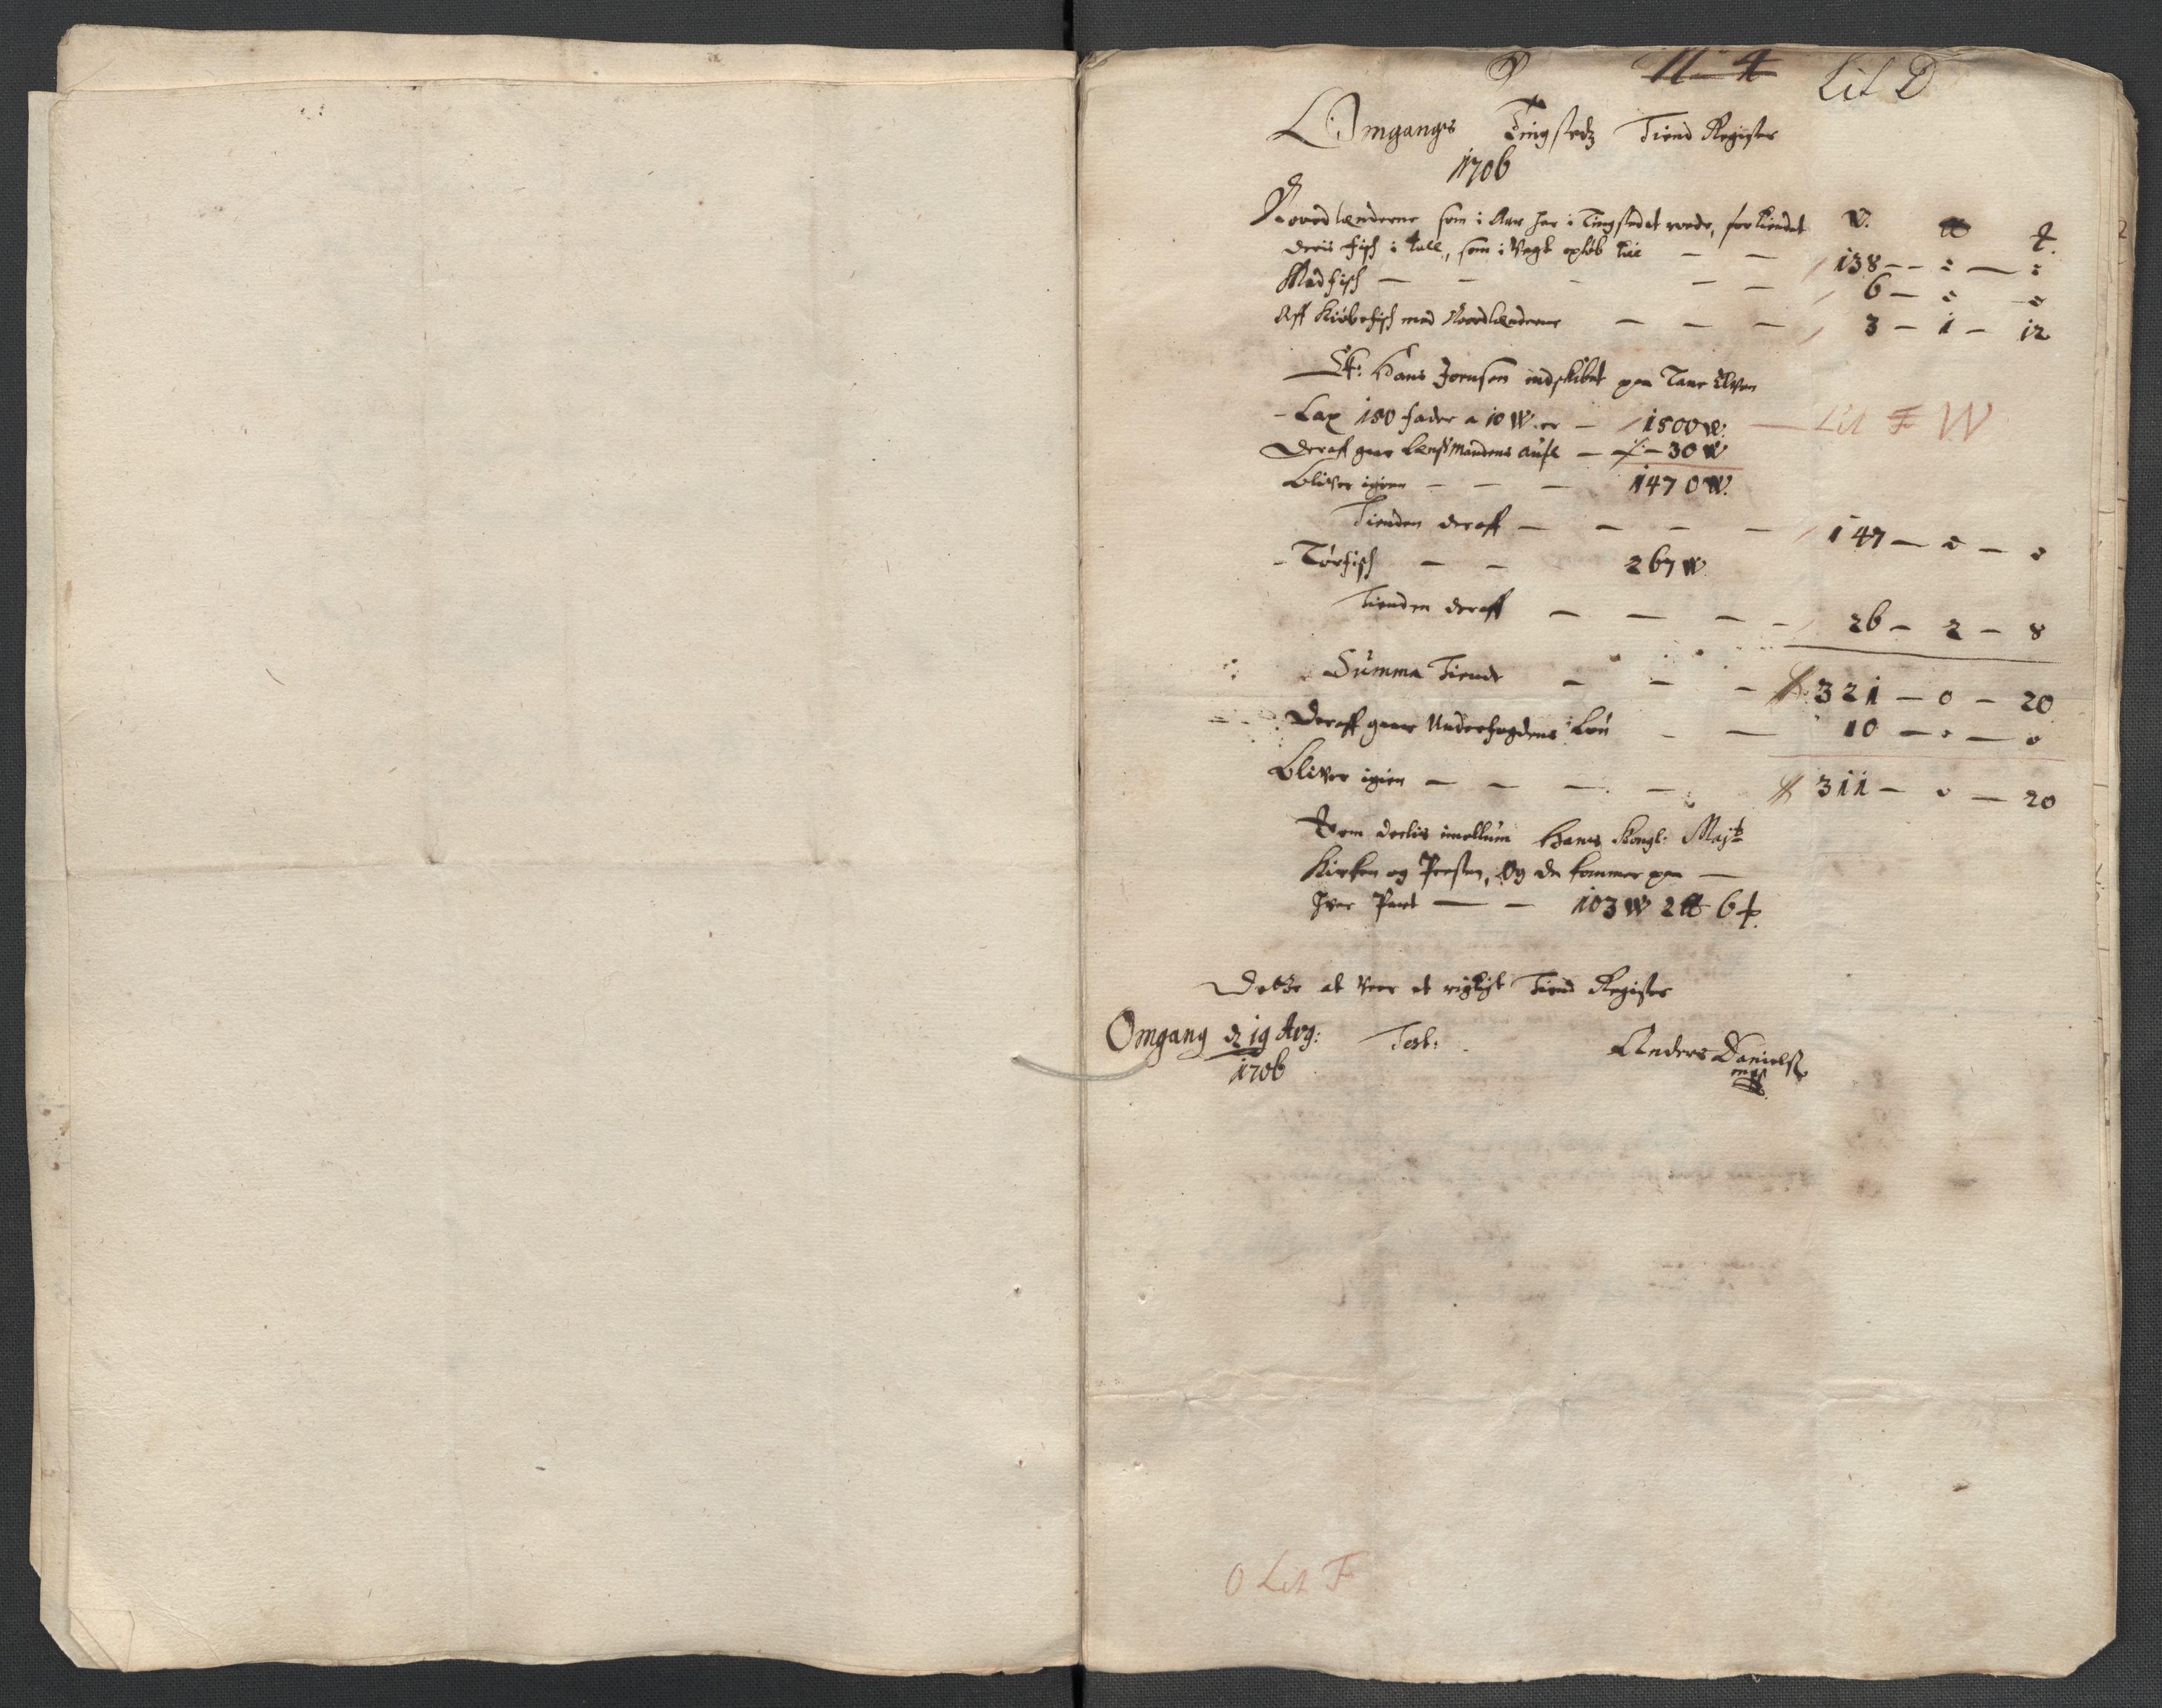 N 4 Lit D
Omgangs Tingstedz Tiend Register
1706
Nordlænderne som i Aar har i Tingstedet roede, fortiendet W. ℔
deris fisch i tall, som i Vegt opløb till — — 138 — : — :
Madfisch — — — — — 6 — : — :
Aff Kiøbefisch med Nordlænderne — — — 3 — 1 — 12
Hans Jørnsen indskibet paa Tane Elven
- Lax 150 fader a 10 W. er — 1500 W: — Lit F W
Deraf gaar Lensmandens — 30 W
Bliver igien — — — 1470 W.
Tienden deraff — — — — 147 — 0 — 0
- Tørfisch — — 267 W
Tienden deraff — — — — 26 — 2 — 8
Summa Tiende — — — 321 — 0 — 20
Deraff gaar Underfogdens Løn — — 10 — 0 — 0
Bliver igien — — — — 311 — 0 — 20
Som deelis imellum Hans Kongl: Maytz
Kirken og Presten, Og da kommer paa —
hver Part — — 103 W 2 ℔ 6
Dette at vere et rigtigt Tiend Register
Omgang d 19 Aug: Test: Anders Danielss
1706 mpp
O Lit F